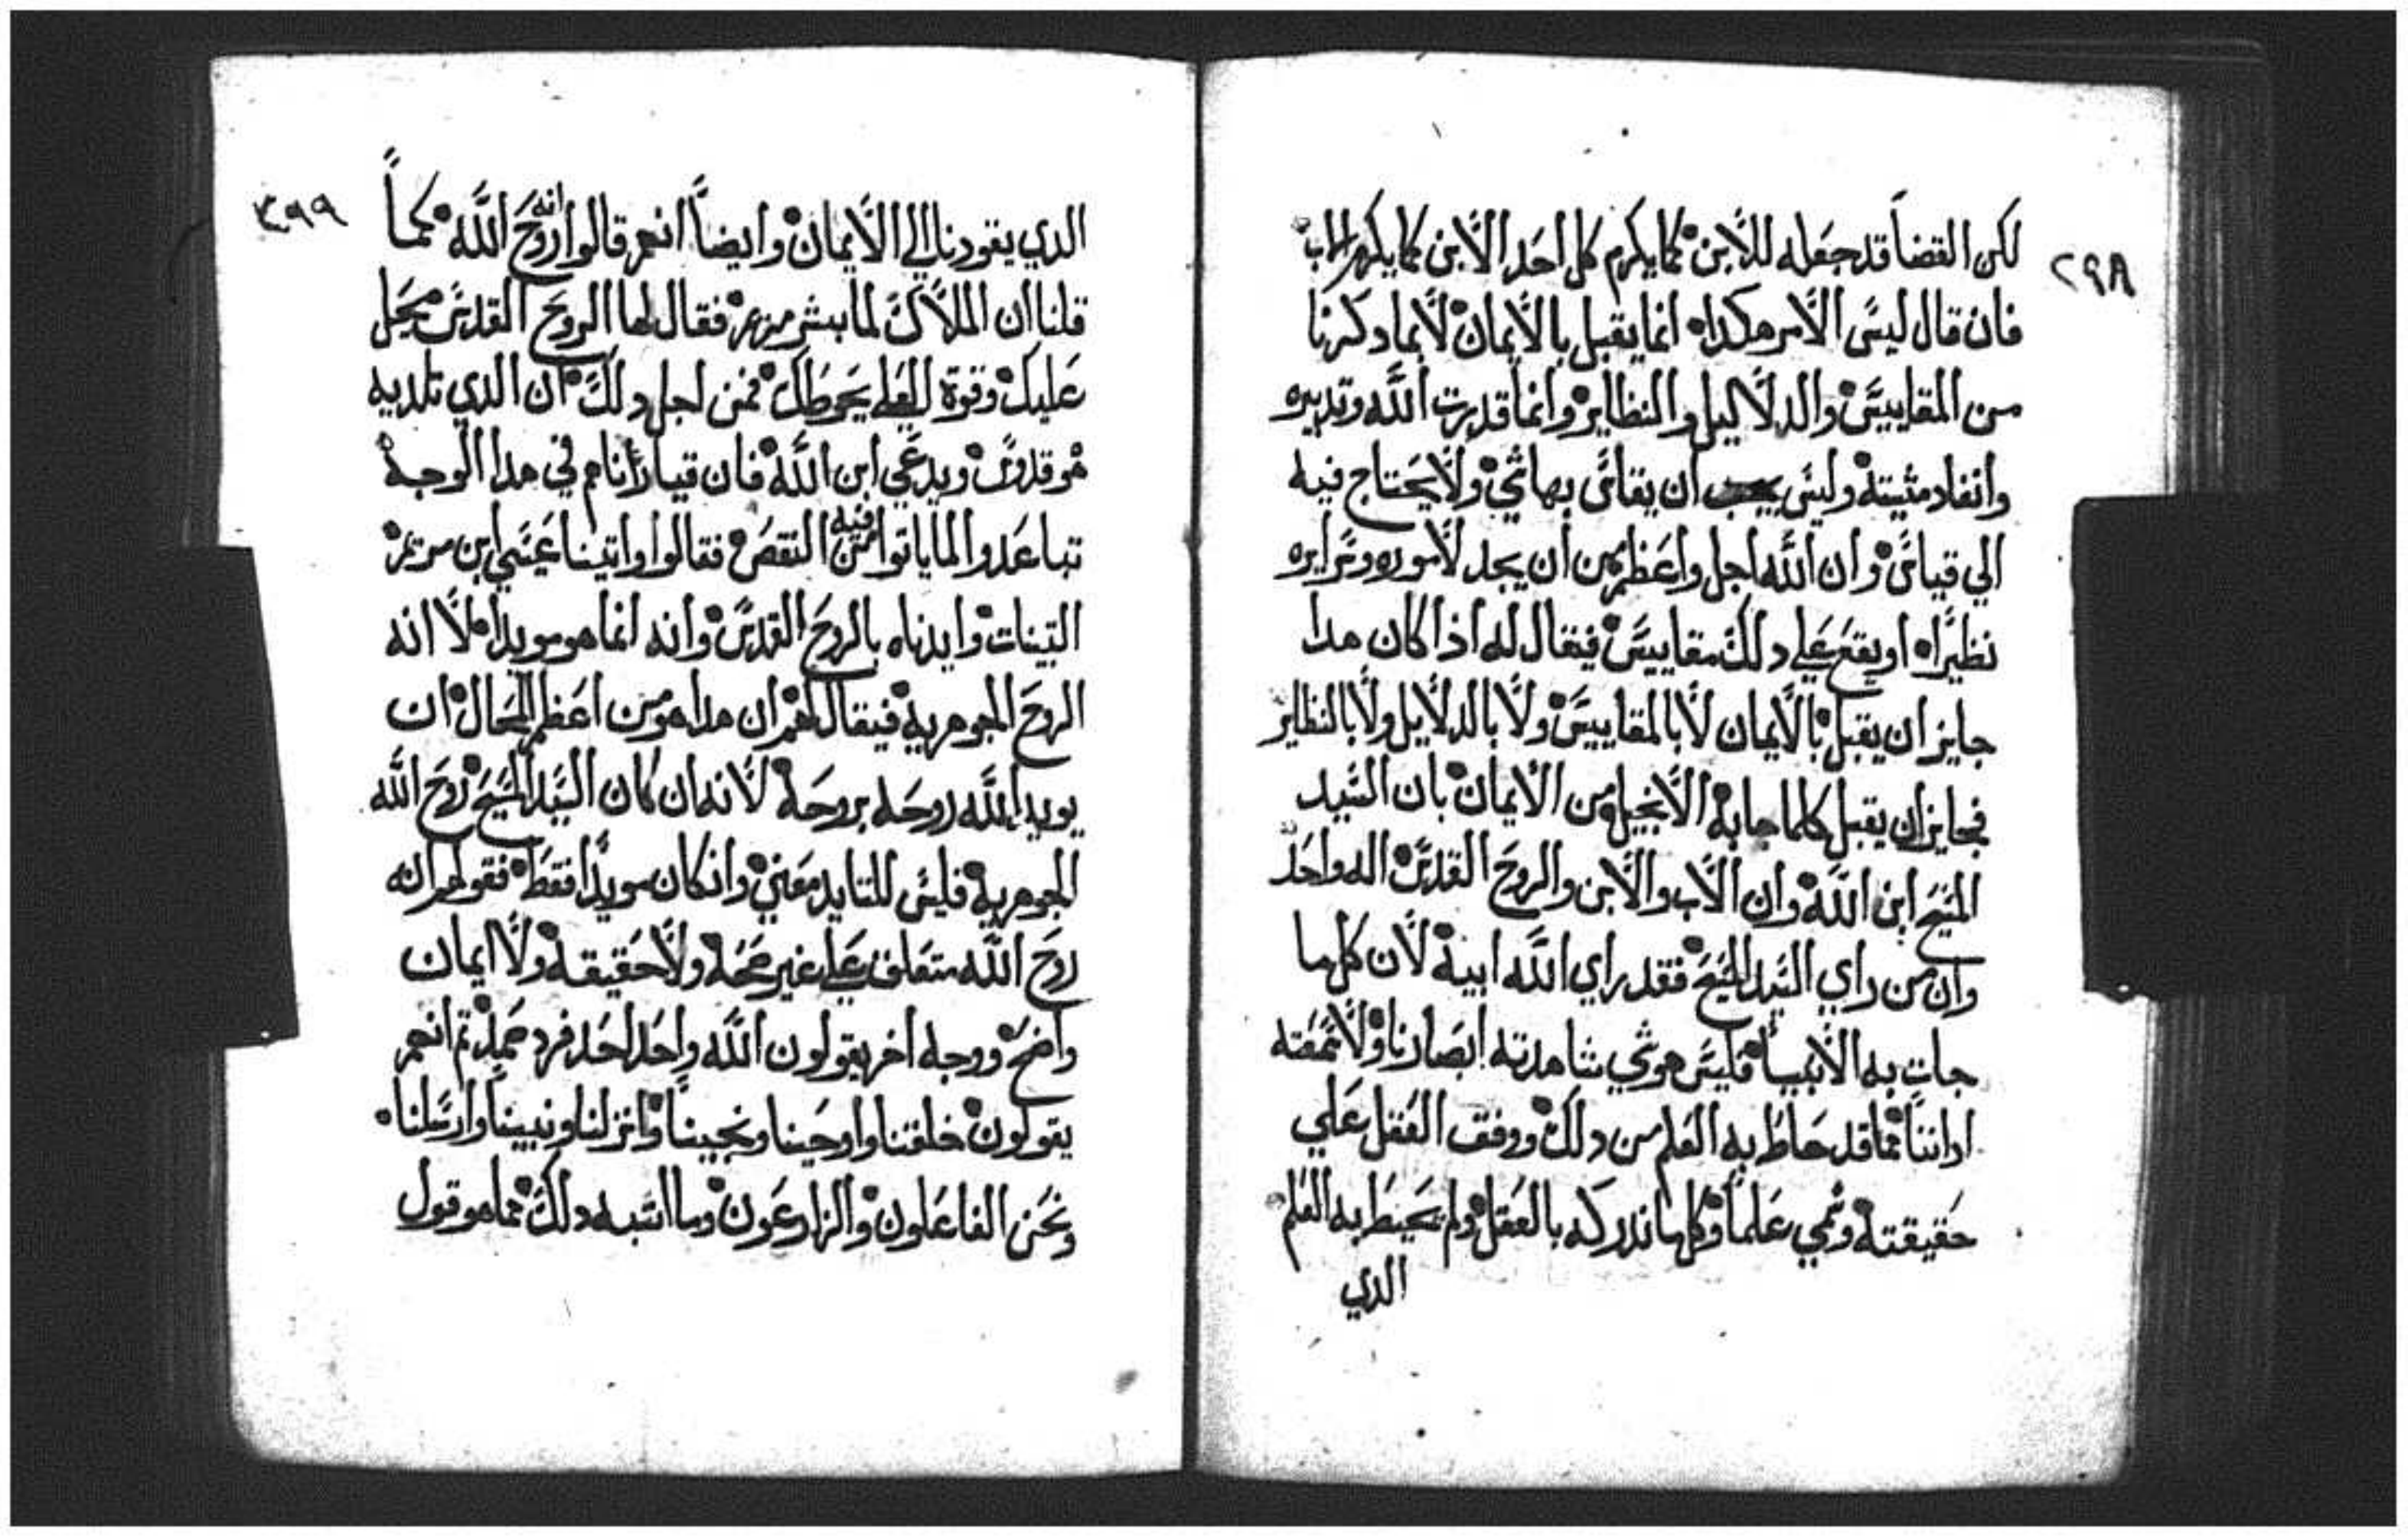 ٢٩٨
لكن القضا قد جعله للابن كما يكرم كل احد الابن كما يكرم الاب
فان قال ليس الامر هكدا انما يقبل بالايمان لا بما دكرنا
من المقاييس والدلاليل والنظاير وانما قدرت الله وتدبيره
وانفاد مشيته وليس يجب ان يقاس بها شي ولا يحتاج فيه
الي قياس وان الله اجل واعظم من ان يجد لاموره وسرايره
نظيرا او يقع علي دلك مقاييس فيقال له اذا كان هدا
جايز ان يقبل بالايمان لا بالمقاييس ولا بالدلايل ولا بالنظاير
فجايز ان يقبل كلما جا به الانجيل من الايمان بان السيد
المسيح ابن الله وان الاب والابن والروح القدس اله واحد
وان من راي السيد المسيح فقد راي الله ابيه لان كل ما
جات به الانبيا فليس هو شي شاهدته ابصارنا ولا سمعته
اداننا مما قد حاط به العلم من دلك ووقف العقل علي
حقيقته وسمي علما وكل ما ندركه بالعقل ولم يحيط به العلم
الدي
٣٩٩
الدي يقودنا الي الايمان وايضا انهم قالوا انه روح الله كما
قلنا ان الملاك لما بشر مريم فقال لها الروح القدس يحل
عليك وقوة العلي يحوطك فمن اجل دلك ان الدي تلديه
هو قدوس ويدعي ابن الله فان قيادنا هم في هدا الوجه
تباعدوا لما ياتوا فيه من النقص فقالوا واتينا عيسي ابن مريم
البينات وايدناه بالروح القدس وانه انما هو مويدا لا انه
الروح الجوهرية فيقال لهم ان هدا هو من اعظم المحال ان
يويد الله روحه بروحه لانه ان كان السيد المسيح روح الله
الجوهرية فليس للتايد معني وان كان مويدا فقط فقولهم انه
روح الله متعلق علي غير صحه ولا حقيقه ولا ايمان
واضح ووجه اخر يقولون الله واحد احد فرد صمد تم انهم
يقولون خلقنا واوحينا ونجينا وانزلنا ونبينا وارسلنا
ونحن الفاعلون والزارعون وما اشبه دلك مما هو قول